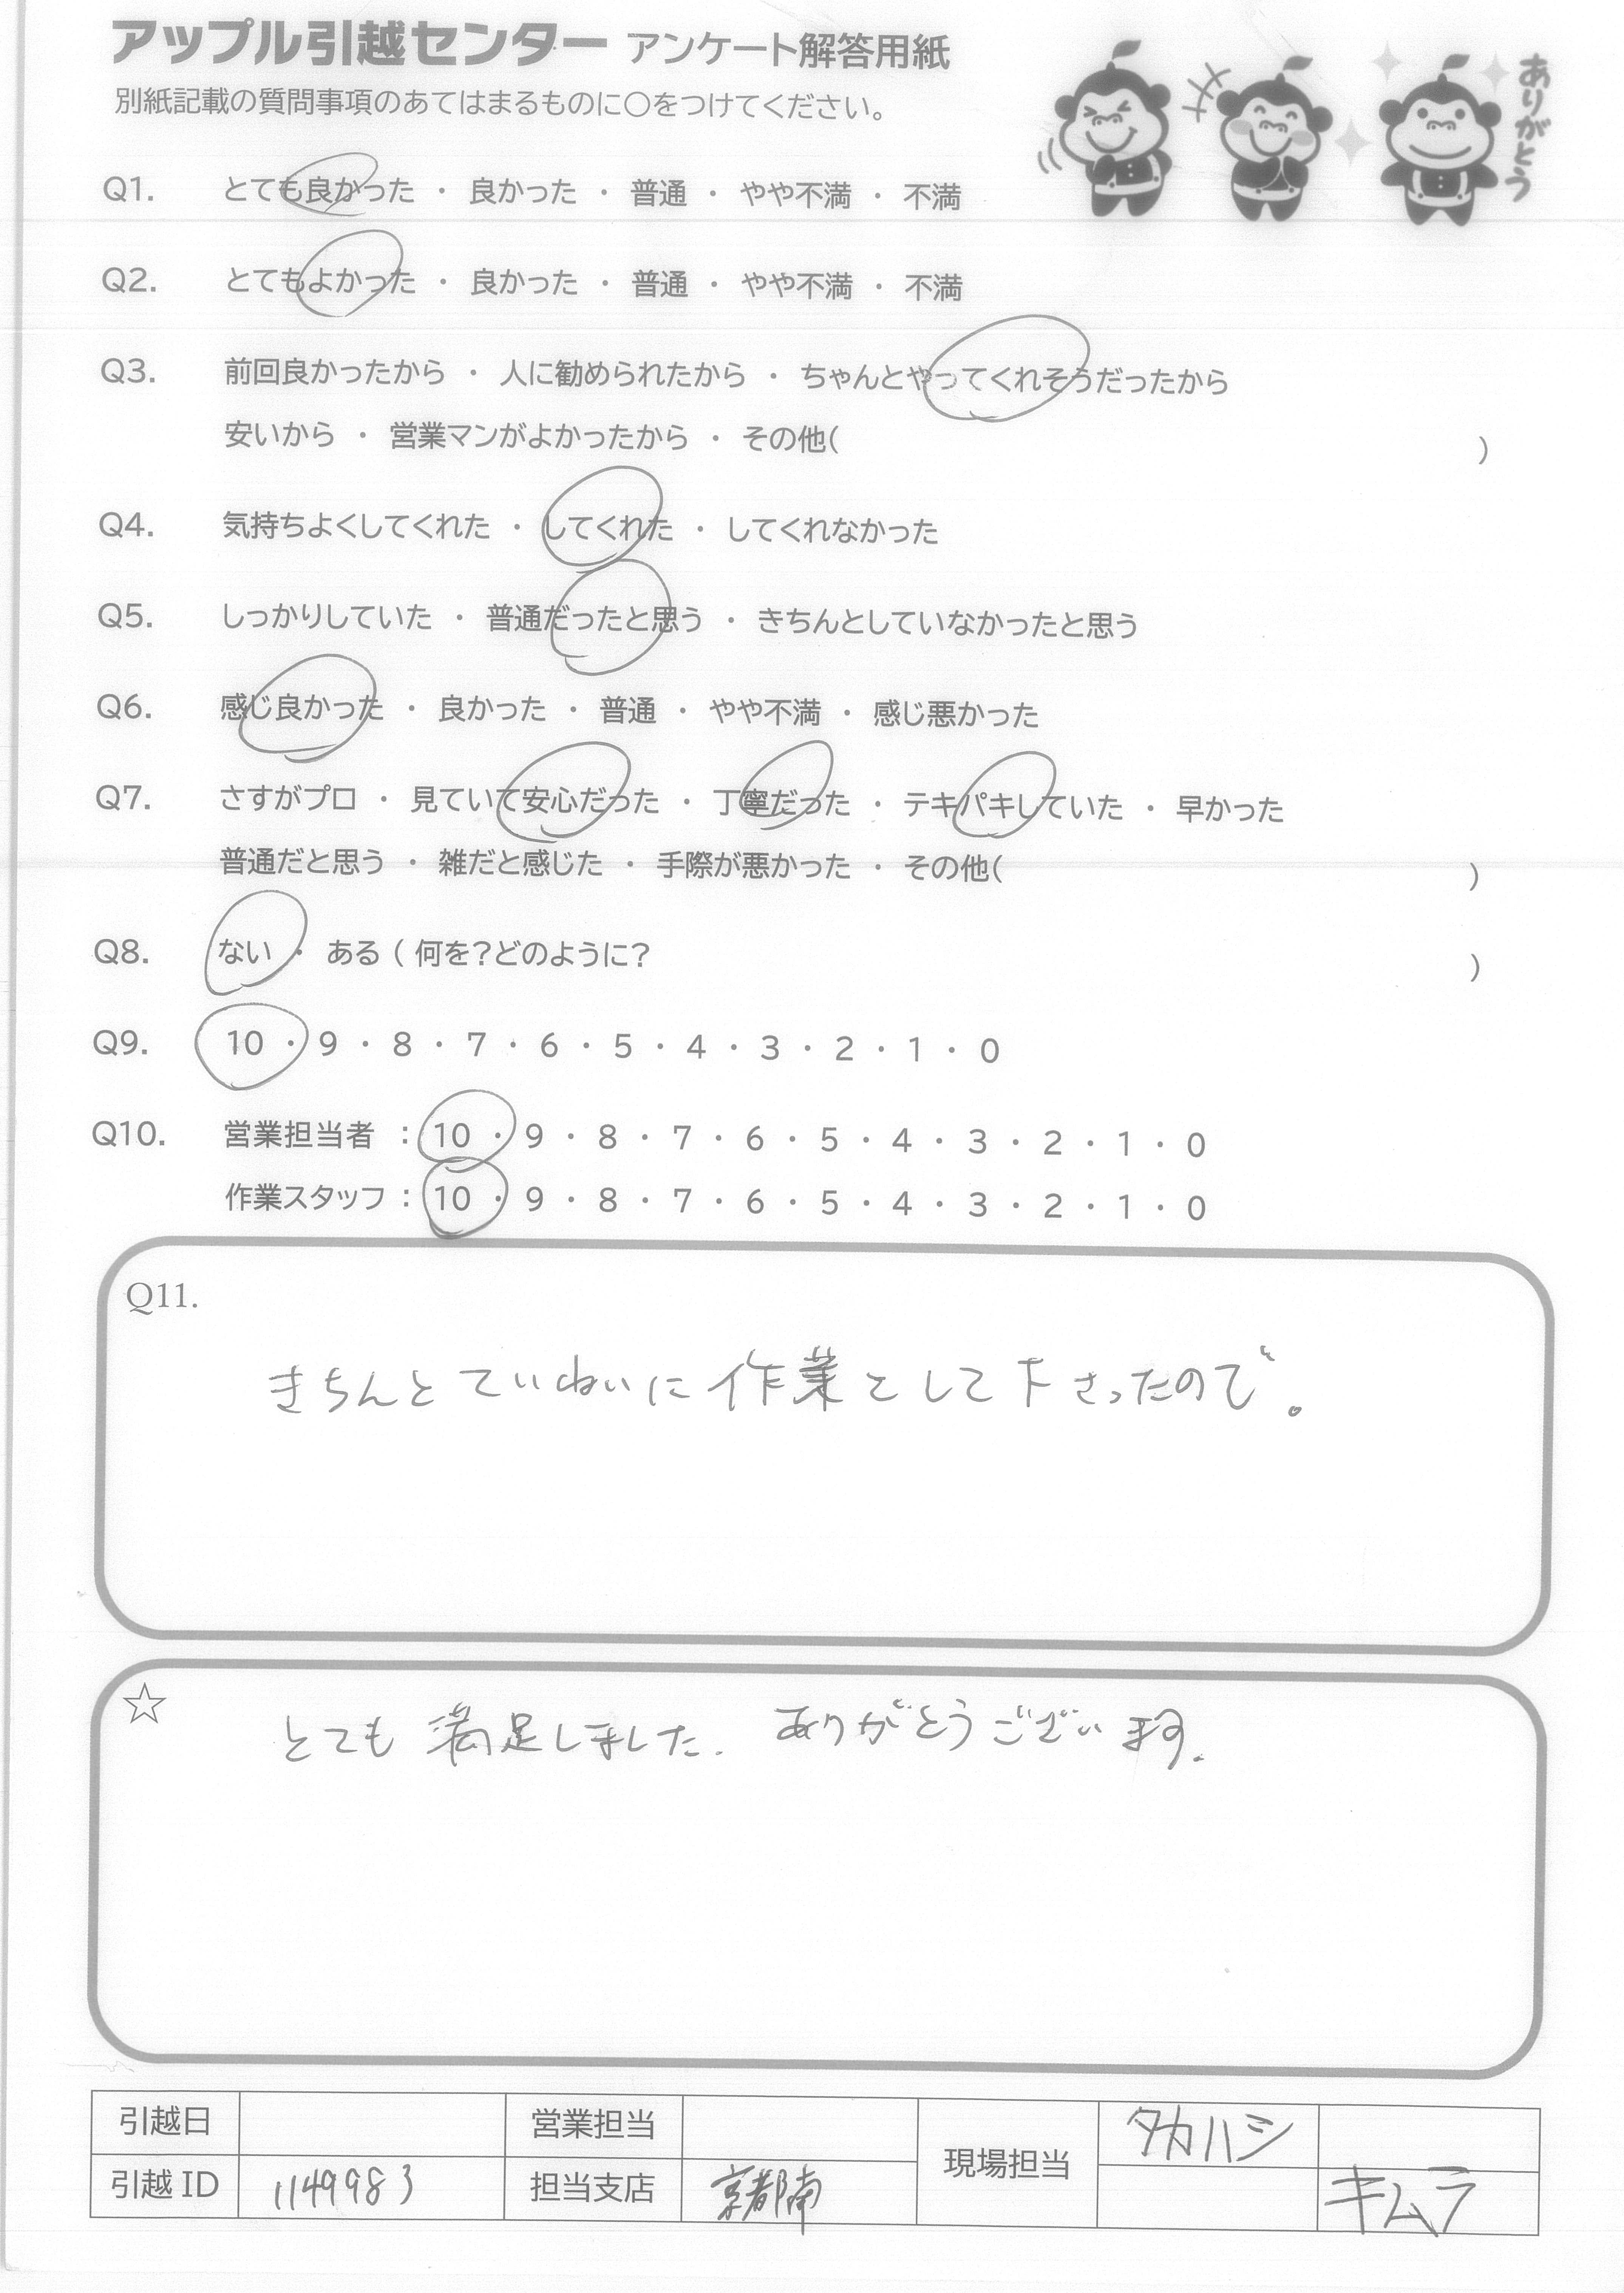 アップル引越センター アンケート解答用紙
別紙記載の質問事項のあてはまるものに〇をつけてください。
ありがとう
Q1. とても良かった ・ 良かった ・ 普通 ・ やや不満 ・ 不満
Q2. とてもよかった ・ 良かった ・ 普通 ・ やや不満 ・ 不満
Q3. 前回良かったから ・ 人に勧められたから ・ ちゃんとやってくれそうだったから
安いから ・ 営業マンがよかったから ・ その他( )
Q4. 気持ちよくしてくれた ・ してくれた ・ してくれなかった
Q5. しっかりしていた ・ 普通だったと思う ・ きちんとしていなかったと思う
Q6. 感じ良かった ・ 良かった ・ 普通 ・ やや不満 ・ 感じ悪かった
Q7. さすがプロ ・ 見ていて安心だった ・ 丁寧だった ・ テキパキしていた ・ 早かった
普通だと思う ・ 雑だと感じた ・ 手際が悪かった ・ その他( )
Q8. ない ・ ある ( 何を?どのように? )
Q9. 10 ・ 9 ・ 8 ・ 7 ・ 6 ・ 5 ・ 4 ・ 3 ・ 2 ・ 1 ・ 0
Q10. 営業担当者 : 10 ・ 9 ・ 8 ・ 7 ・ 6 ・ 5 ・ 4 ・ 3 ・ 2 ・ 1 ・ 0
作業スタッフ : 10 ・ 9 ・ 8 ・ 7 ・ 6 ・ 5 ・ 4 ・ 3 ・ 2 ・ 1 ・ 0
Q11.
きちんとていねいに作業をして下さったので。
☆
とても満足しました. ありがとうございます.
引越日 営業担当 現場担当 タカハシ
引越ID 1149983 担当支店 京都南 キムラ